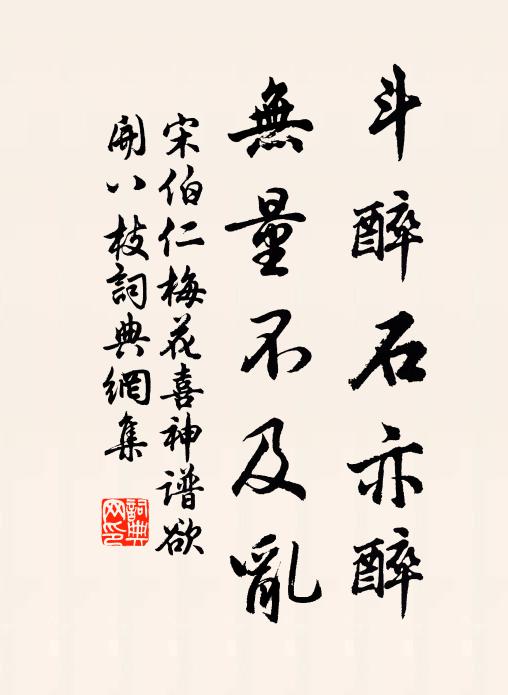 斗醉石亦醉
無量不及亂
宋伯仁梅花喜神譜欲
開八枝詞典網集
詞典网印